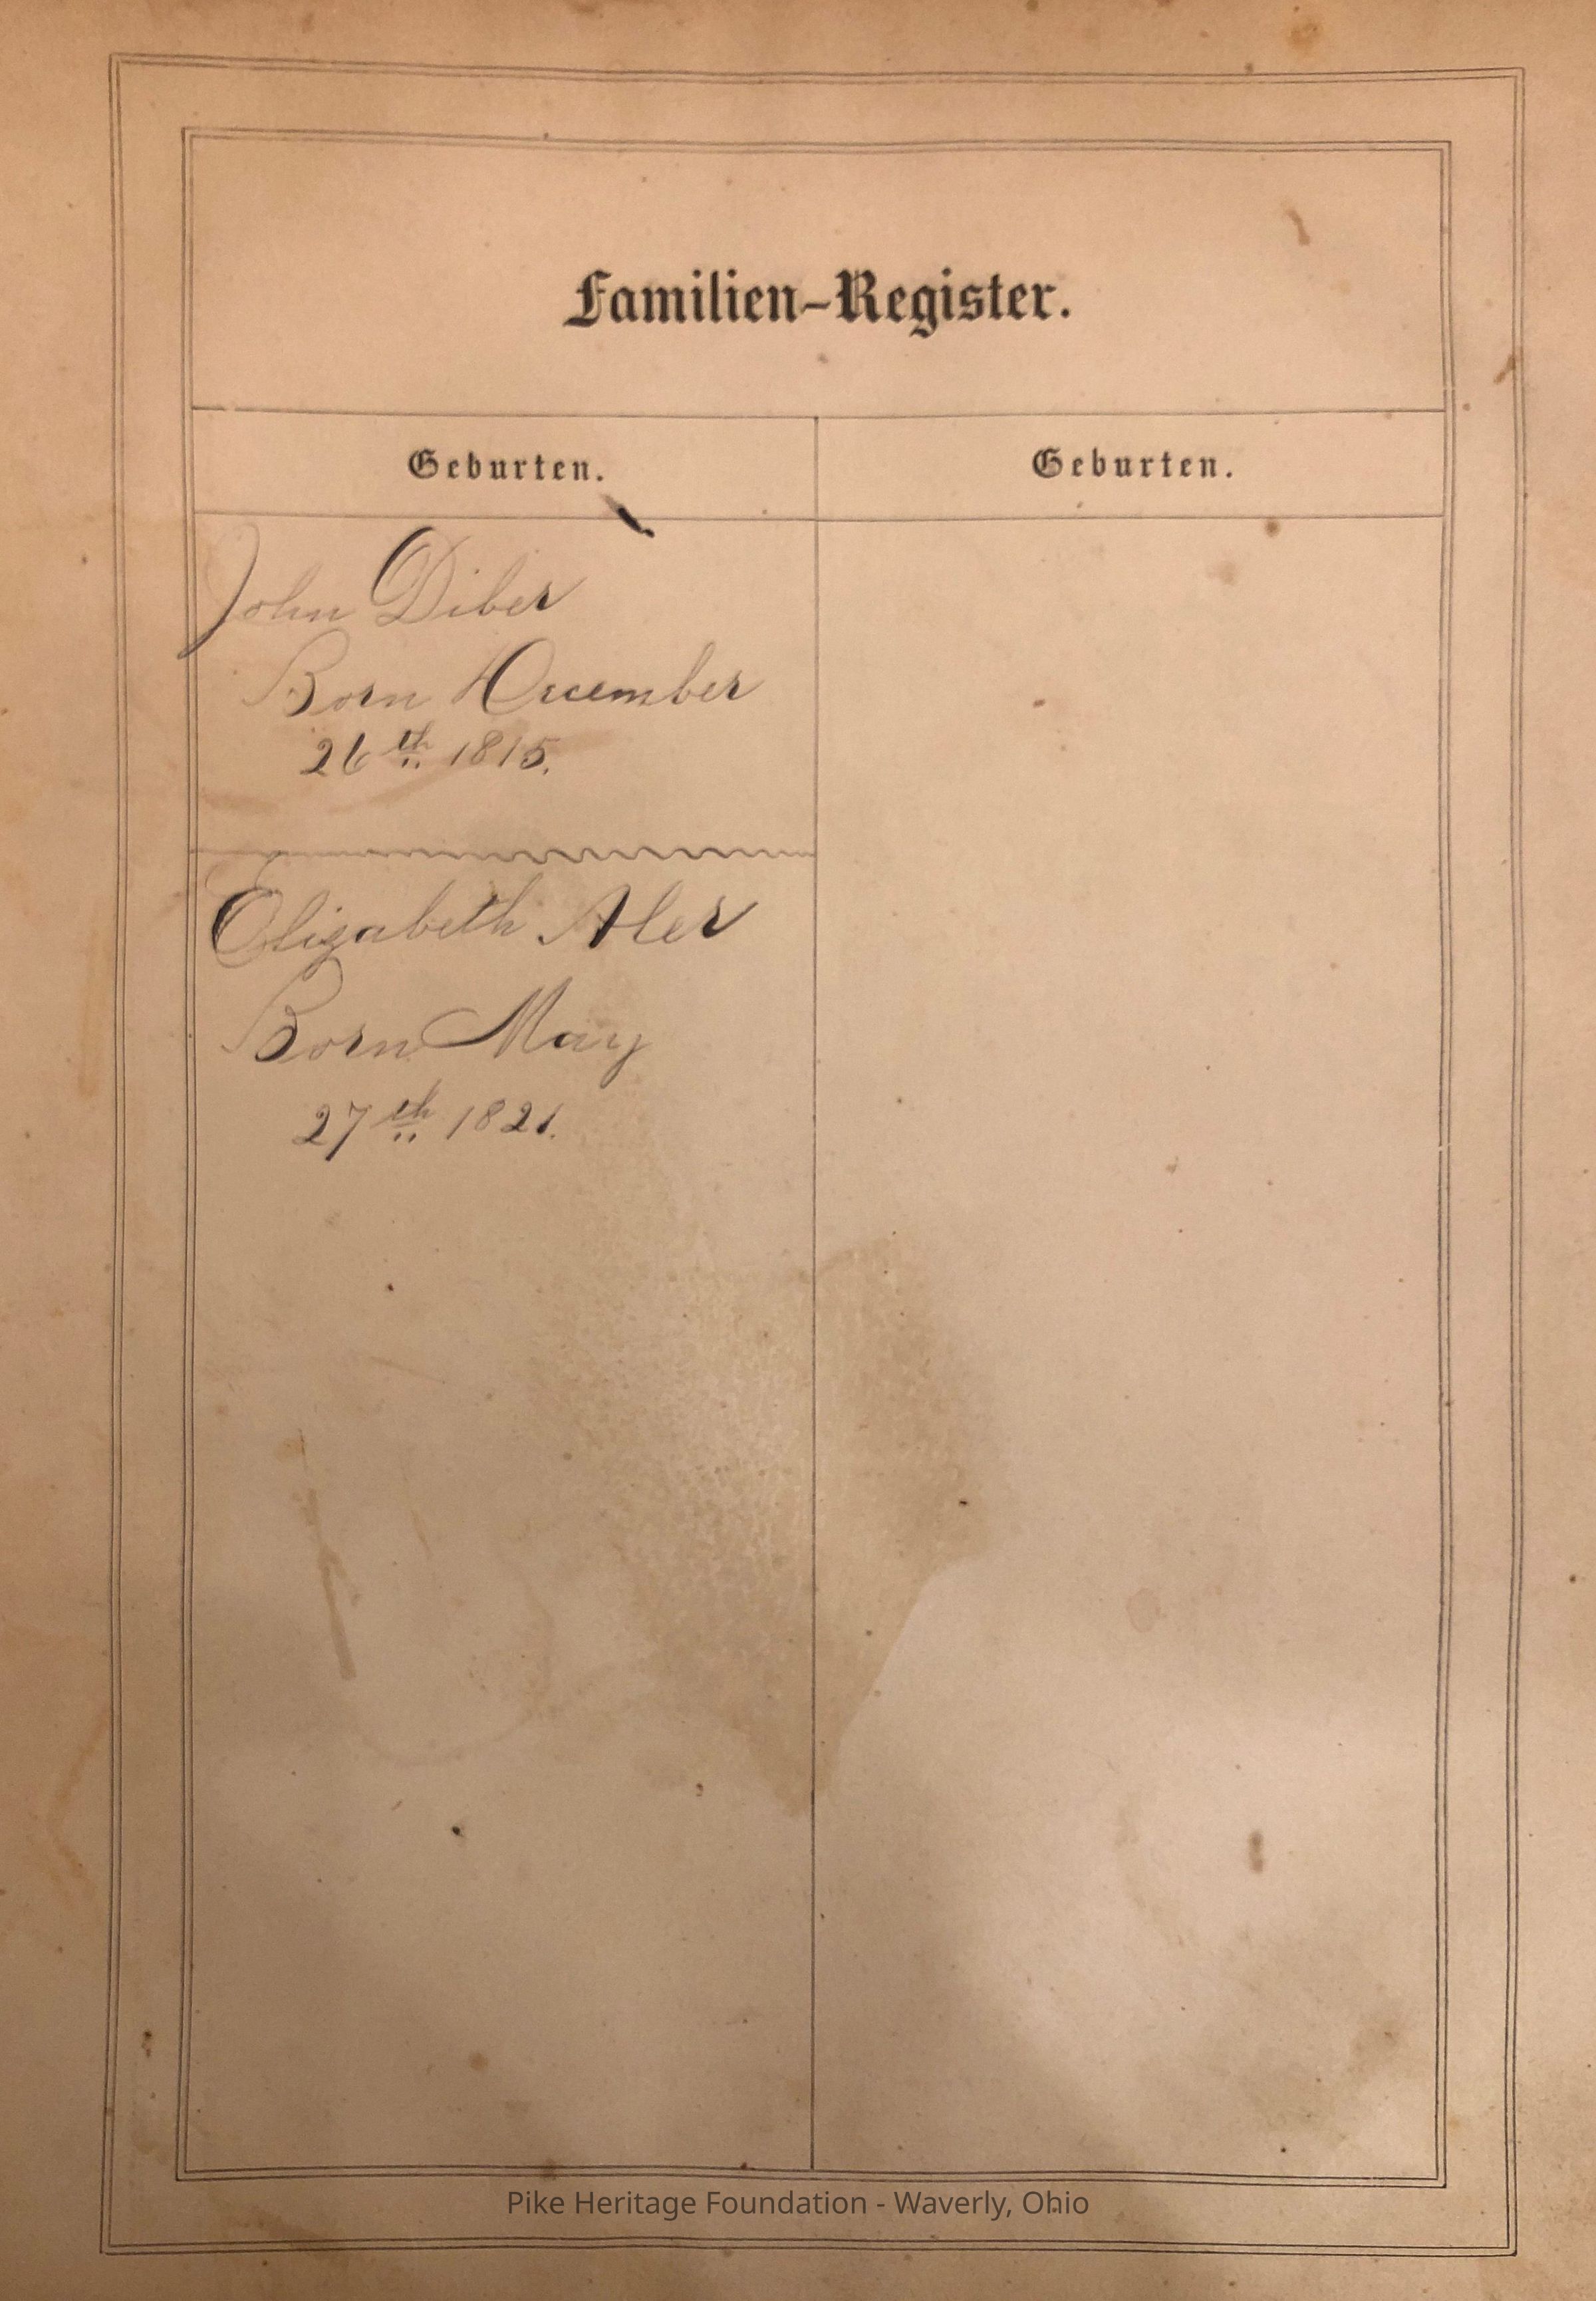 Familien-Register.
Geburten.
Geburten.
John Diber
Born December
26th 1815.
Elizabeth Aler
Born May
27th 1821.
Pike Heritage Foundation - Waverly, Ohio